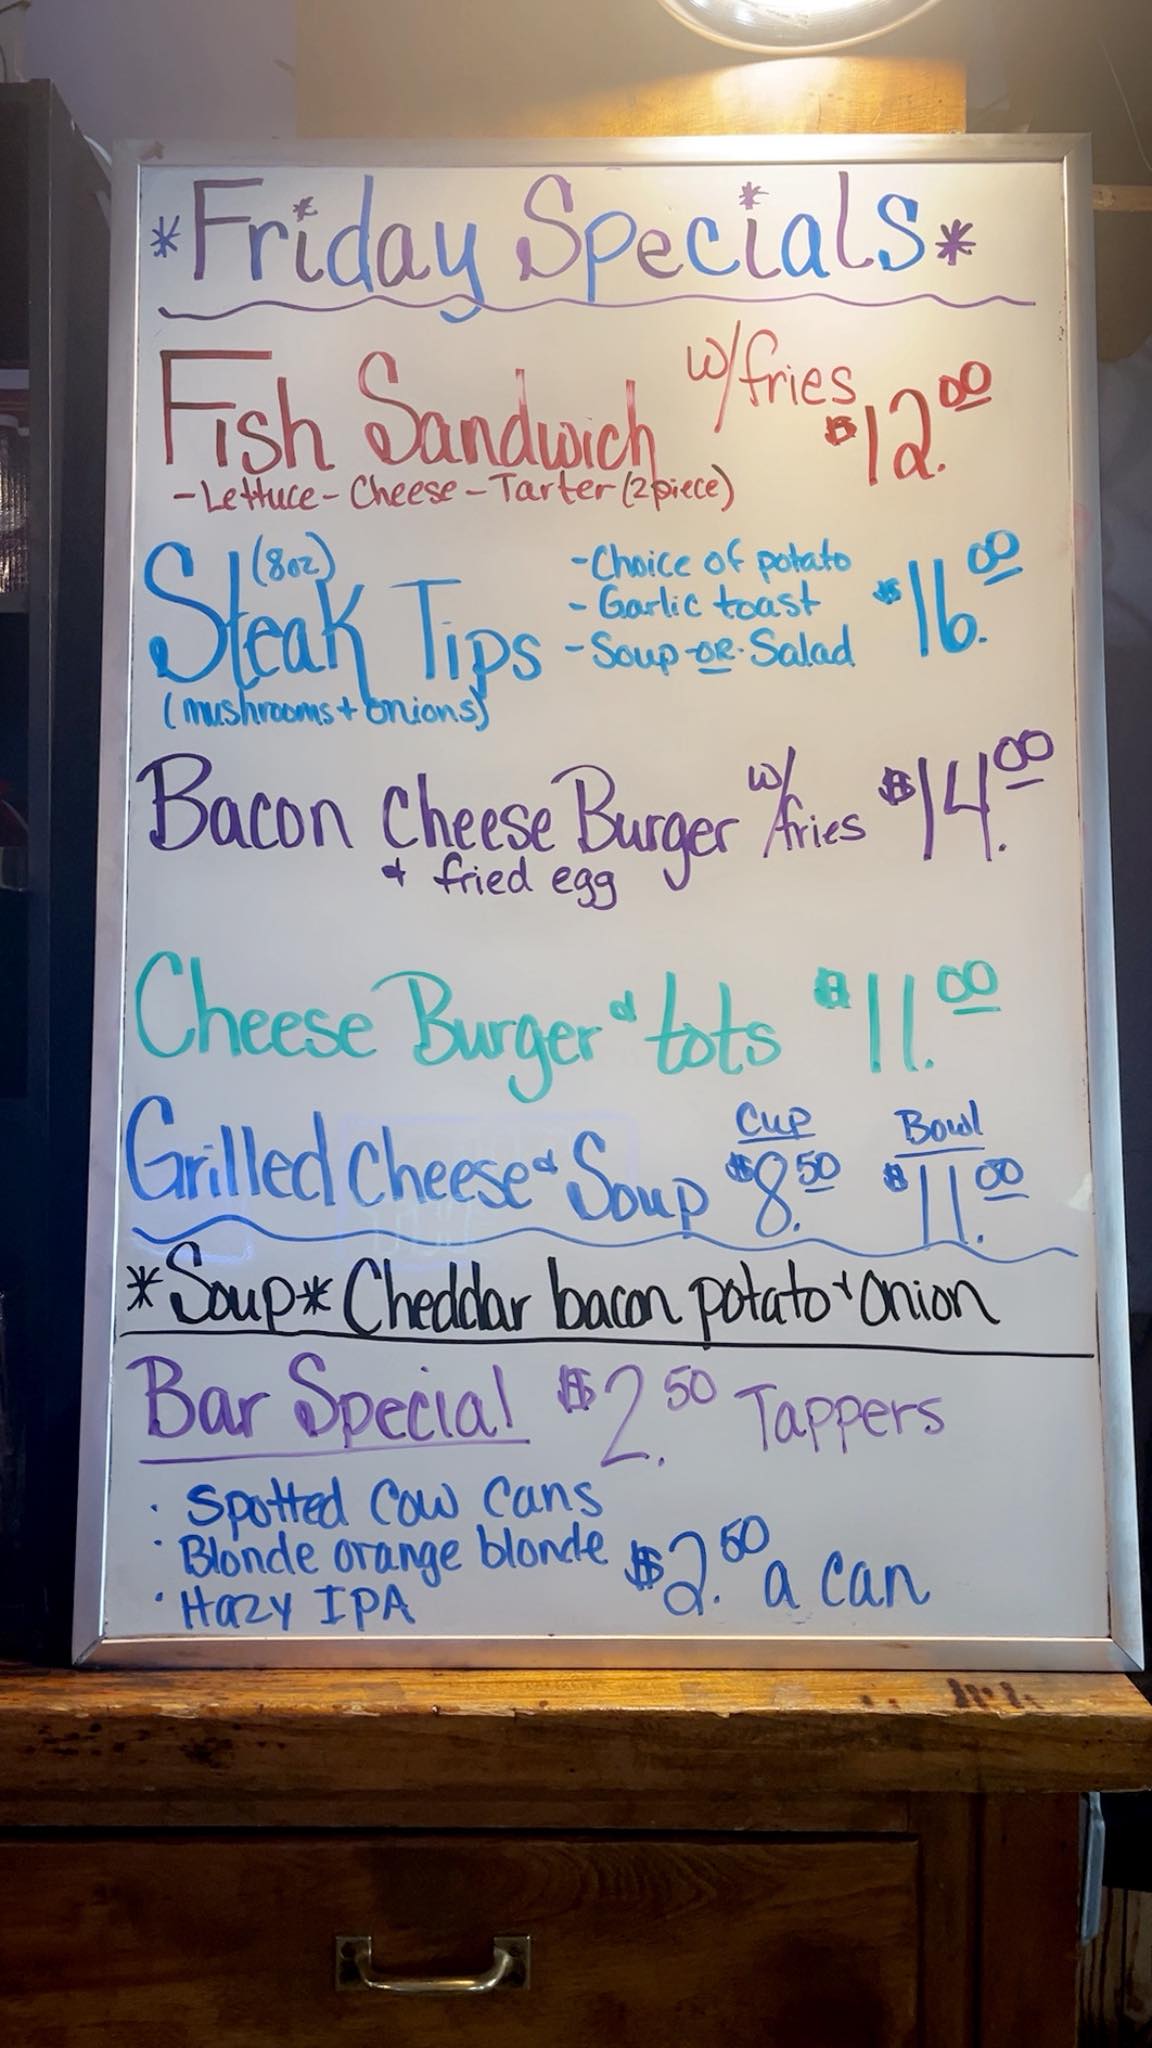 *Friday Specials*
Fish Sandwich w/fries $12.00
-Lettuce-Cheese-Tarter (2piece)
Steak Tips (8oz) $16.00
-Choice of potato
-Garlic toast
-Soup-OR-Salad
(mushrooms + onions)
Bacon Cheese Burger w/fries $14.00
& fried egg
Cheese Burger & tots $11.00
Cup Bowl
Grilled Cheese & Soup $8.50 $11.00
*Soup* Cheddar bacon potato & Onion
Bar Special $2.50 Tappers
· Spotted Cow Cans
· Blonde orange blonde $2.50 a can
· Hazy IPA